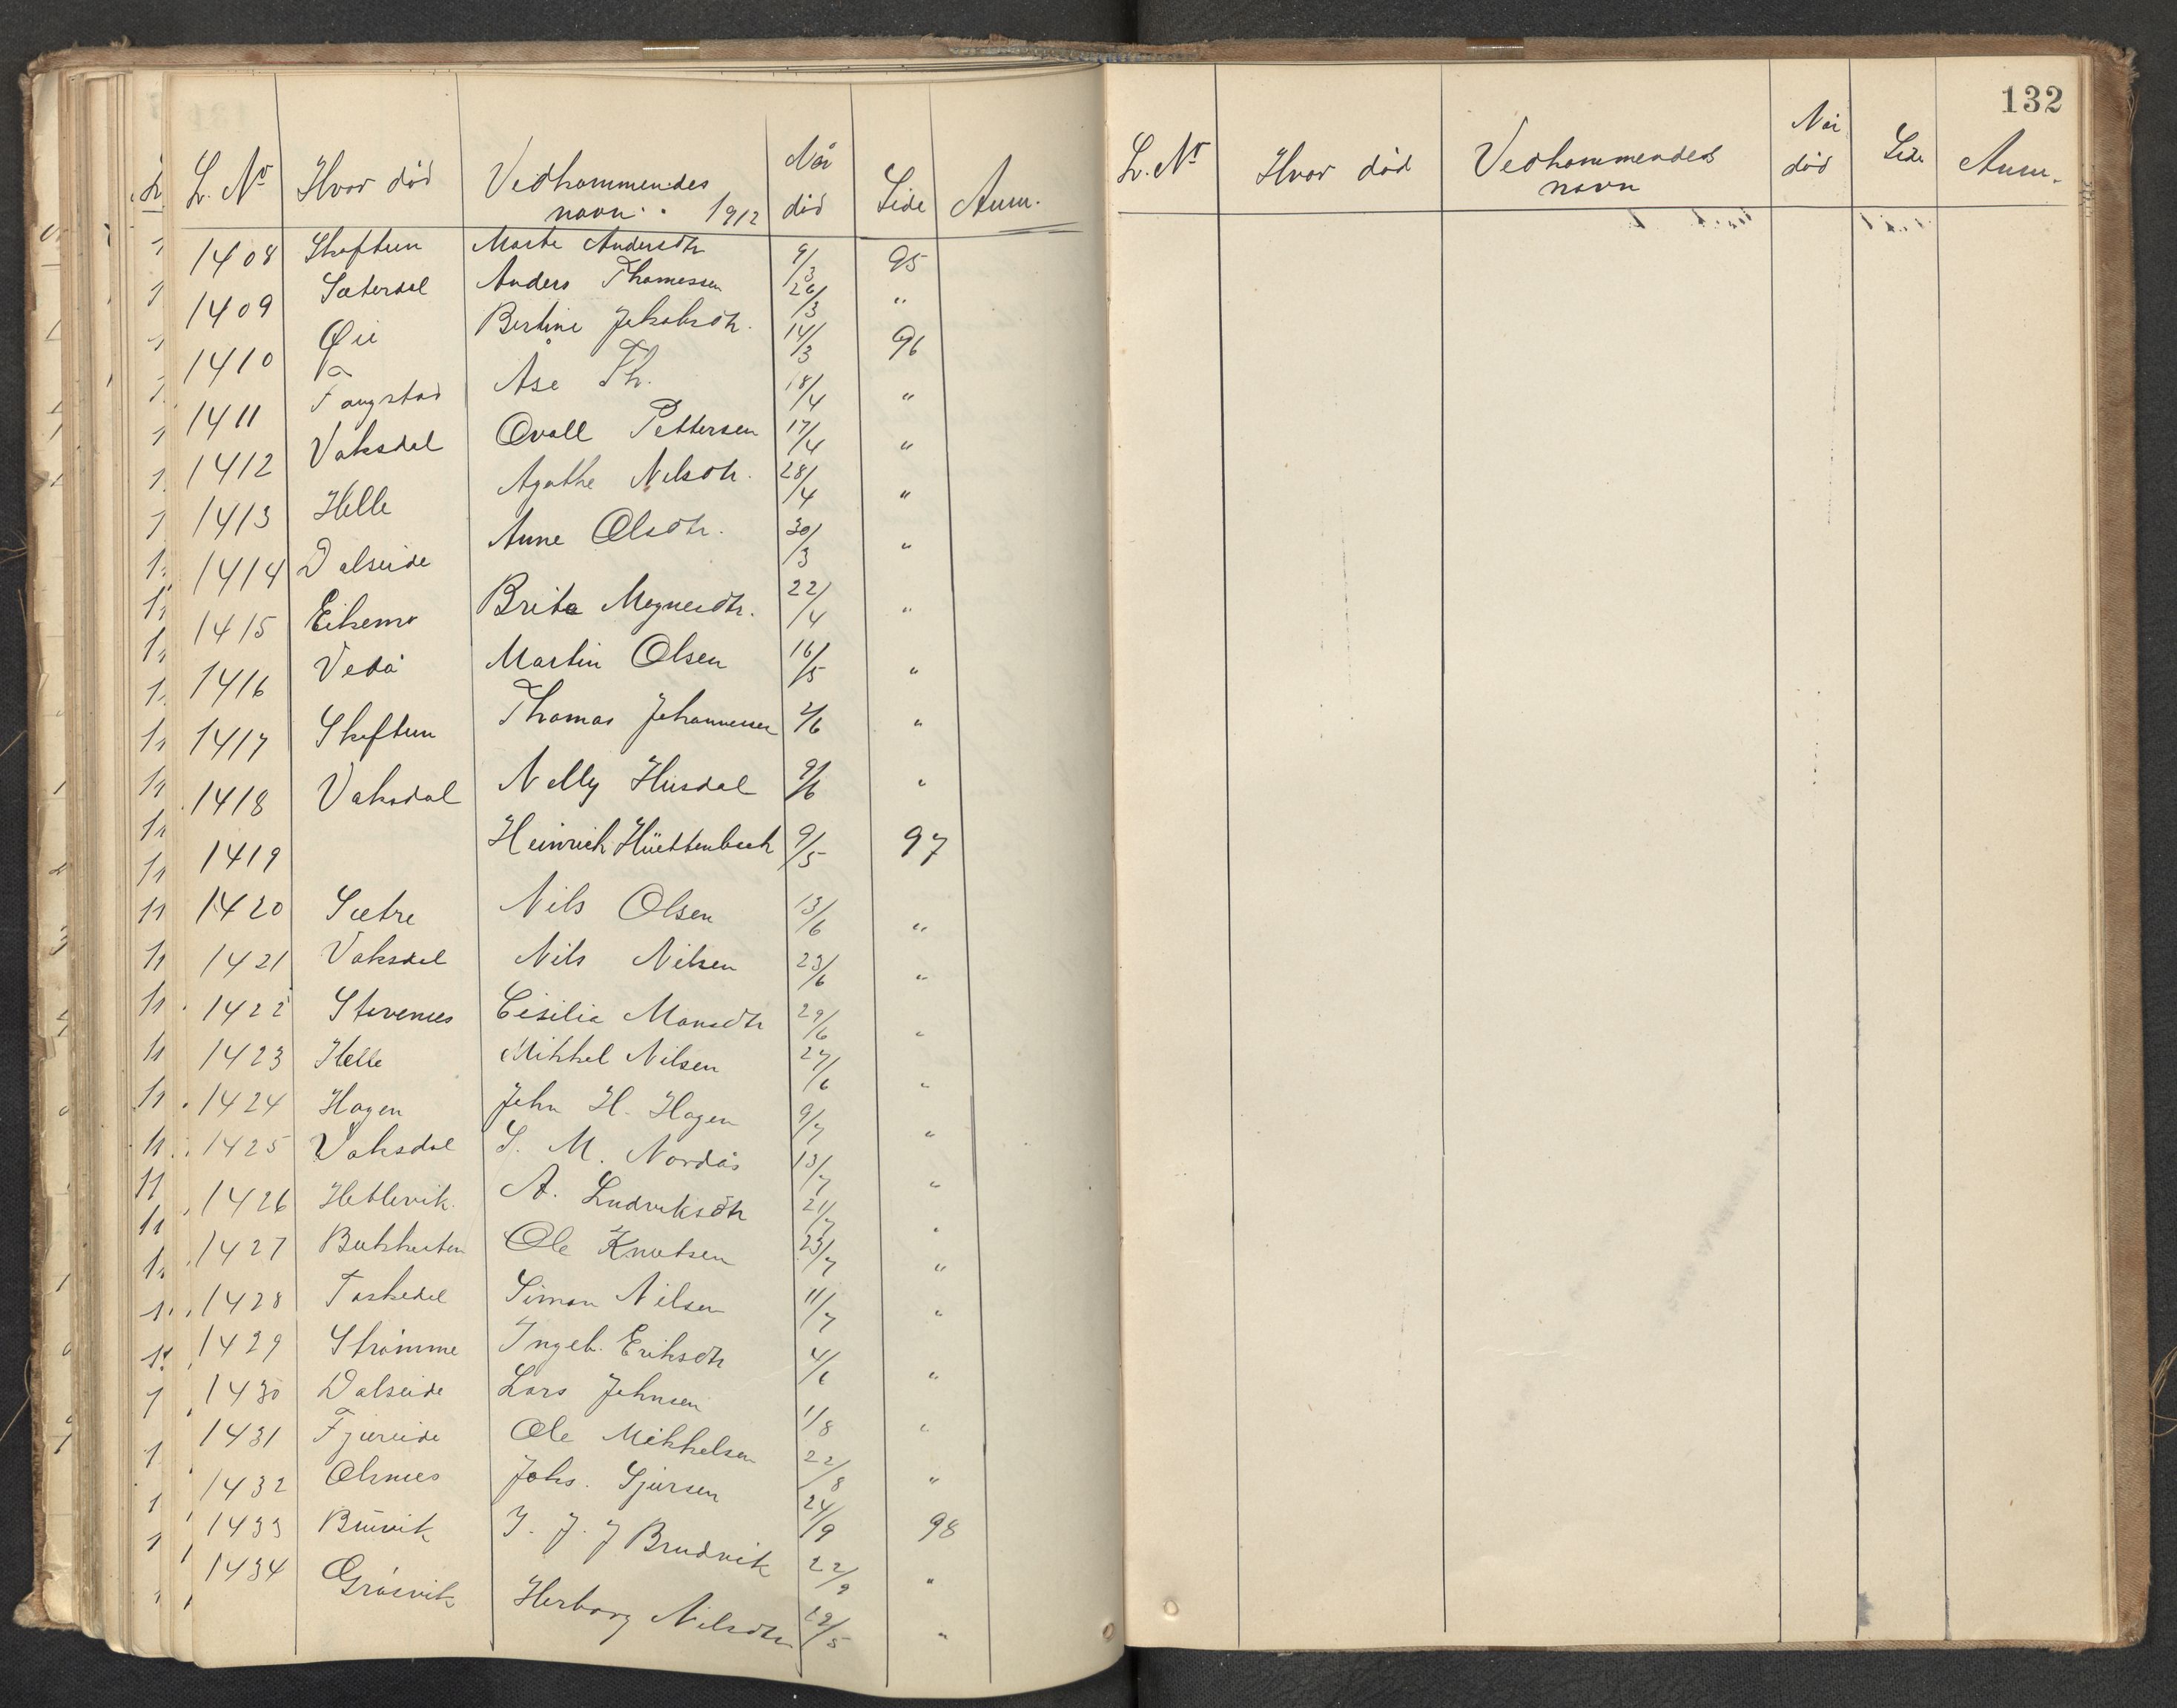 L. No Hvor död Vedkommendes navn. 1912 Når död Side Anm.
1408 Skoftun Marta Andersdtr 9/3 95
1409 Sæterdal Anders Thomessen 26/3 "
1410 Øie Bertine Jakobsdtr. 14/3 96
1411 Fangstad Åse Th. 18/4 "
1412 Vaksdal Qvall Pettersen 17/4 "
1413 Helle Agathe Nilsdtr. 28/4 "
1414 Dalseide Anne Olsdtr. 30/3 "
1415 Eikemo Brita Magnesdtr. 22/4 "
1416 Vedå Martin Olsen 16/5 "
1417 Skoftun Thomas Johannessen 2/6 "
1418 Vaksdal Nelly Husdal 9/6 "
1419 Heinrich Hüettenbach 9/5 97
1420 Sætre Nils Olsen 13/6 "
1421 Vaksdal Nils Nilsen 23/6 "
1422 Stavenes Cisilia Monsdtr 29/6 "
1423 Helle Mikkel Nilsen 27/6 "
1424 Hagen John H. Hagen 9/7 "
1425 Vaksdal S. M. Nordås 13/7 "
1426 Hetlevik. A. Ludviksdtr 21/7 "
1427 Ole Knutsen 23/7 "
1428 Toskedal Simon Nilsen 11/7 "
1429 Strömme Ingeb. Eriksdtr 4/6 "
1430 Dalseide Lars Johnsen 1/8 "
1431 Fjæreide Ole Mikkelsen 22/8 "
1432 Olsnes Johs. Sjursen 24/9 98
1433 Bruvik I. J. J Brudvik 22/9 "
1434 Gråsvik Herborg Nilsdtr 19/5 "
132
L. No Hvor död Vedkommendes navn Når död Side Anm.